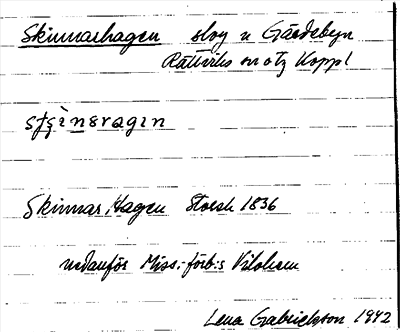 Skinnarhagen skog n Gärdebyn
Rättviks sn o tg Koppl
Skinnar, Hagen Storsk 1836
nedanför Miss.förb:s Vilohem
Lena Gabrielsson 1942